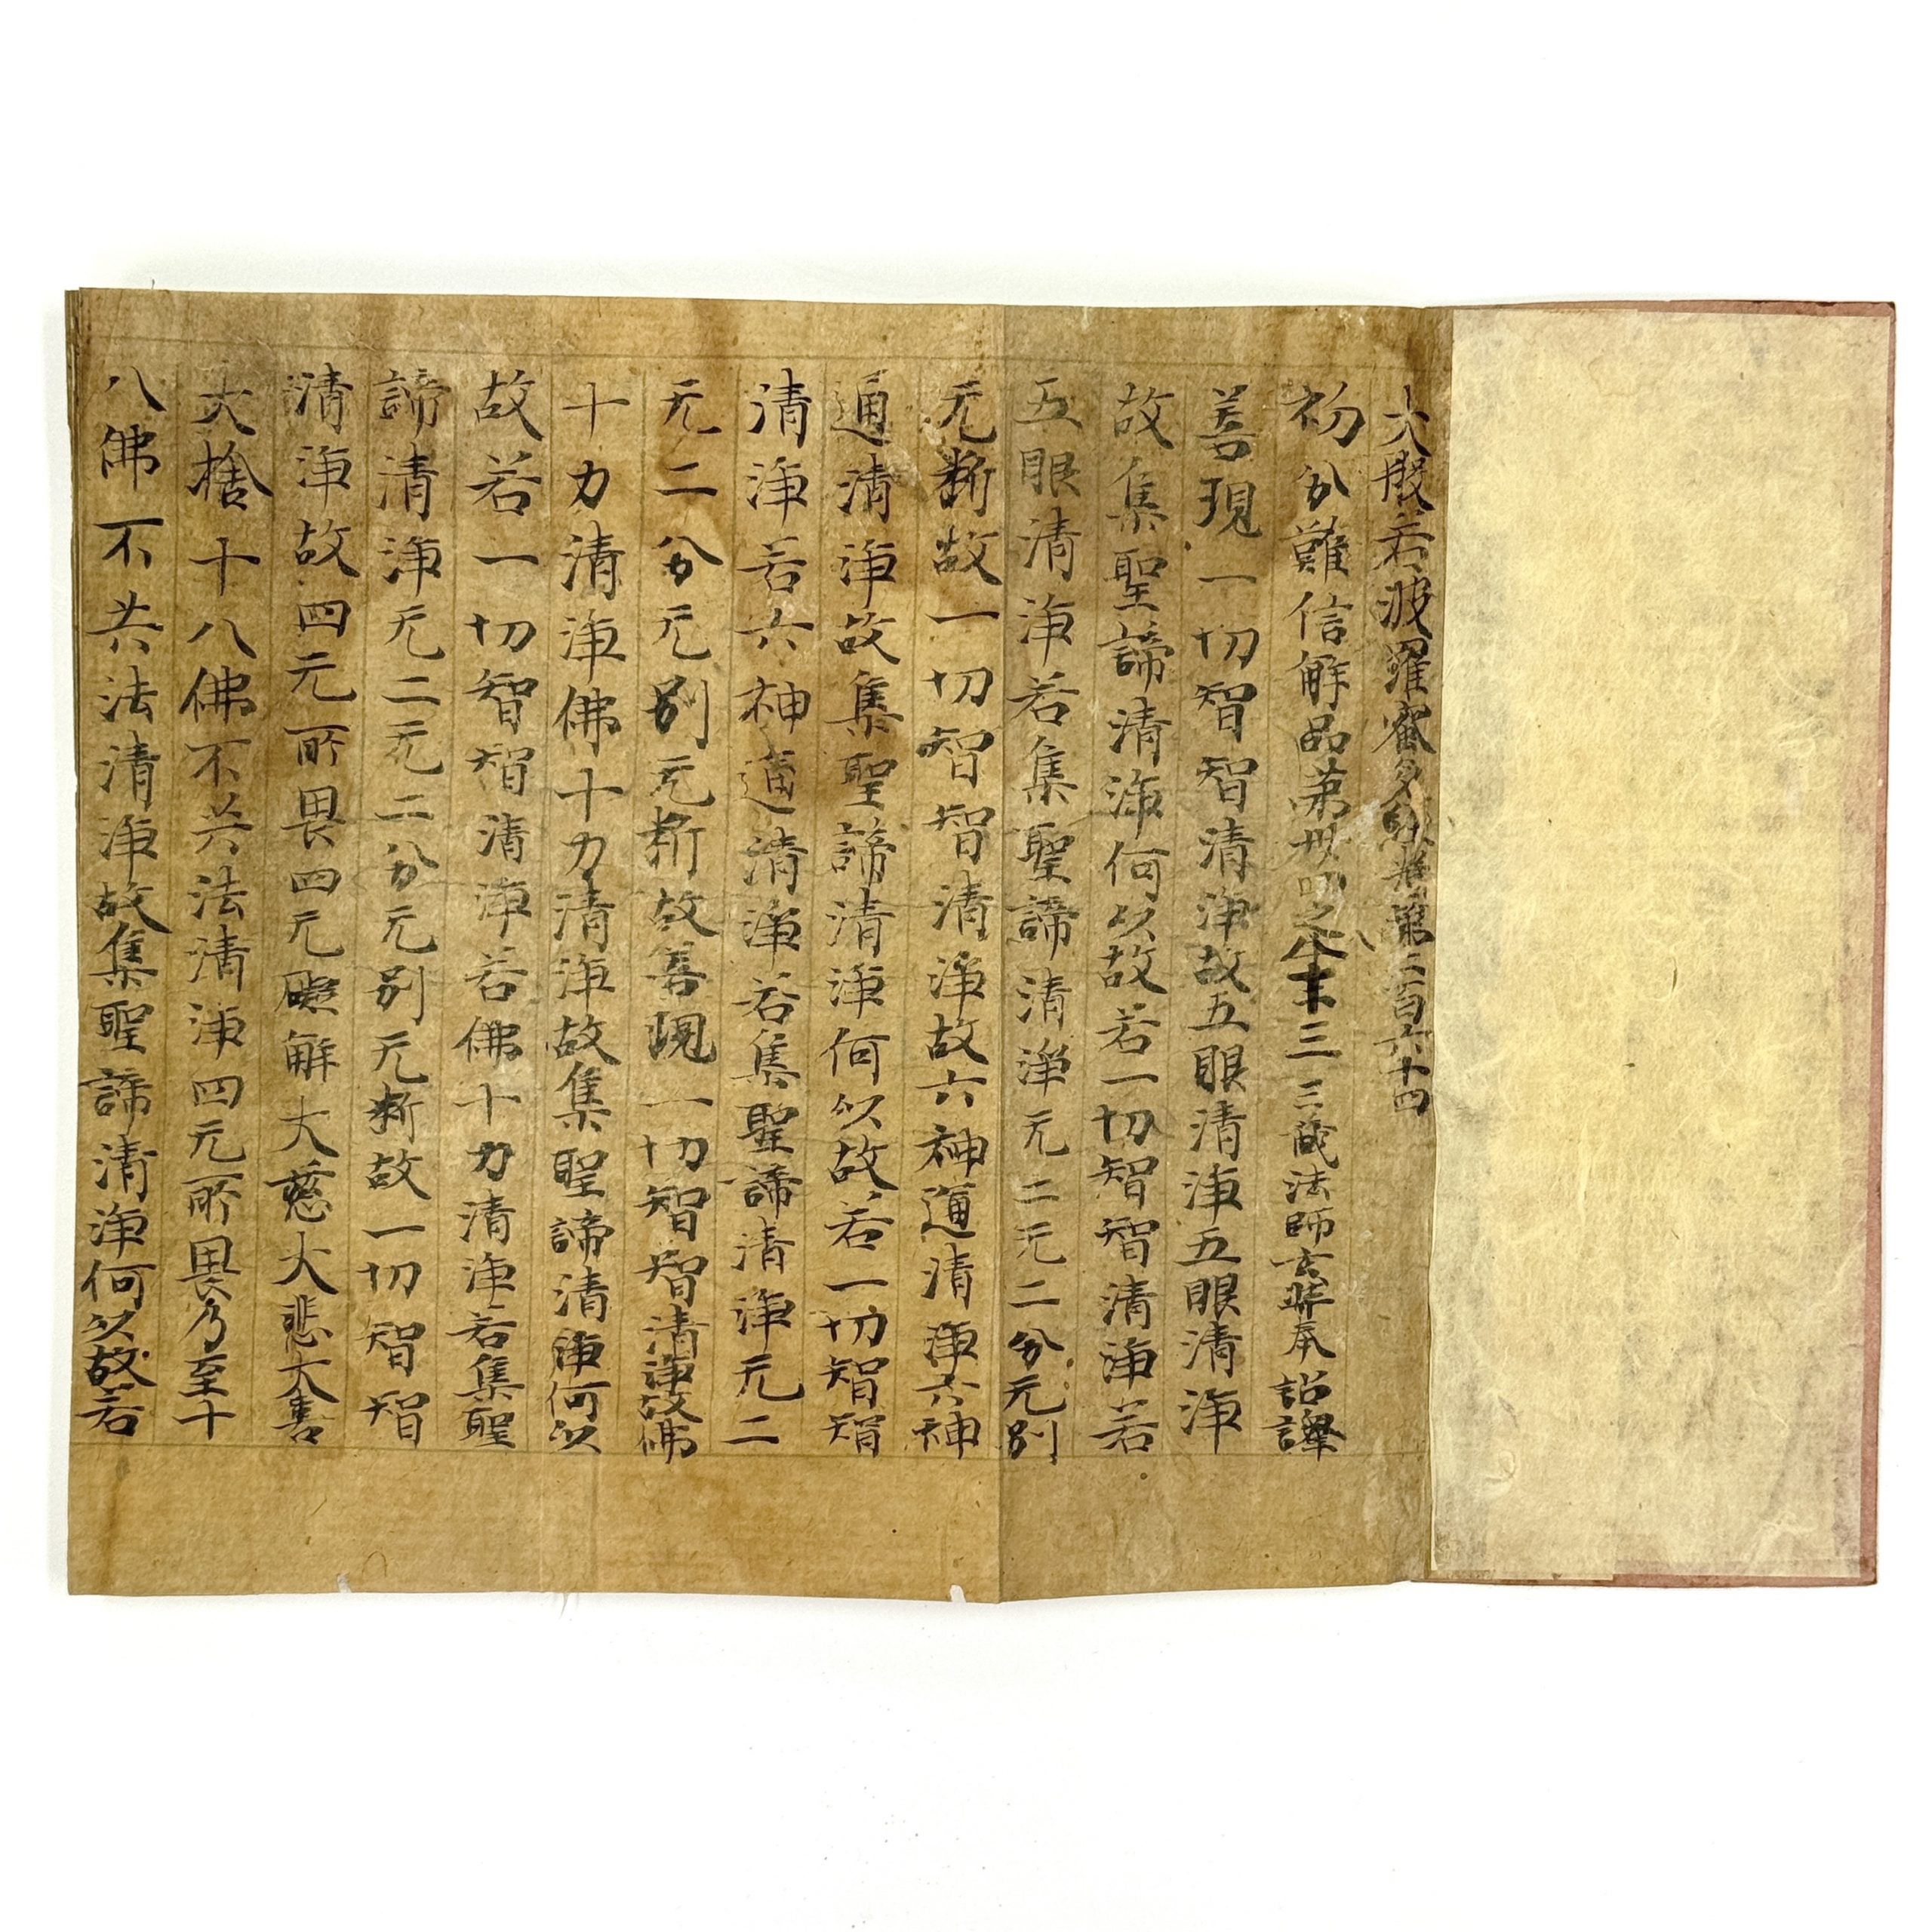 大般若波羅蜜多經卷第二百六十四
初分難信解品第卅四之八十三 三藏法師玄奘奉 詔譯
善現一切智智清淨故五眼清淨五眼清淨
故集聖諦清淨何以故若一切智智清淨若
五眼清淨若集聖諦清淨无二无二分无別
无斷故一切智智清淨故六神通清淨六神
通清淨故集聖諦清淨何以故若一切智智
清淨若六神通清淨若集聖諦清淨无二
无二分无別无斷故善現一切智智清淨故佛
十力清淨佛十力清淨故集聖諦清淨何以
故若一切智智清淨若佛十力清淨若集聖
諦清淨无二无二分无別无斷故一切智智
清淨故四无所畏四无礙解大慈大悲大喜
大捨十八佛不共法清淨四无所畏乃至十
八佛不共法清淨故集聖諦清淨何以故若